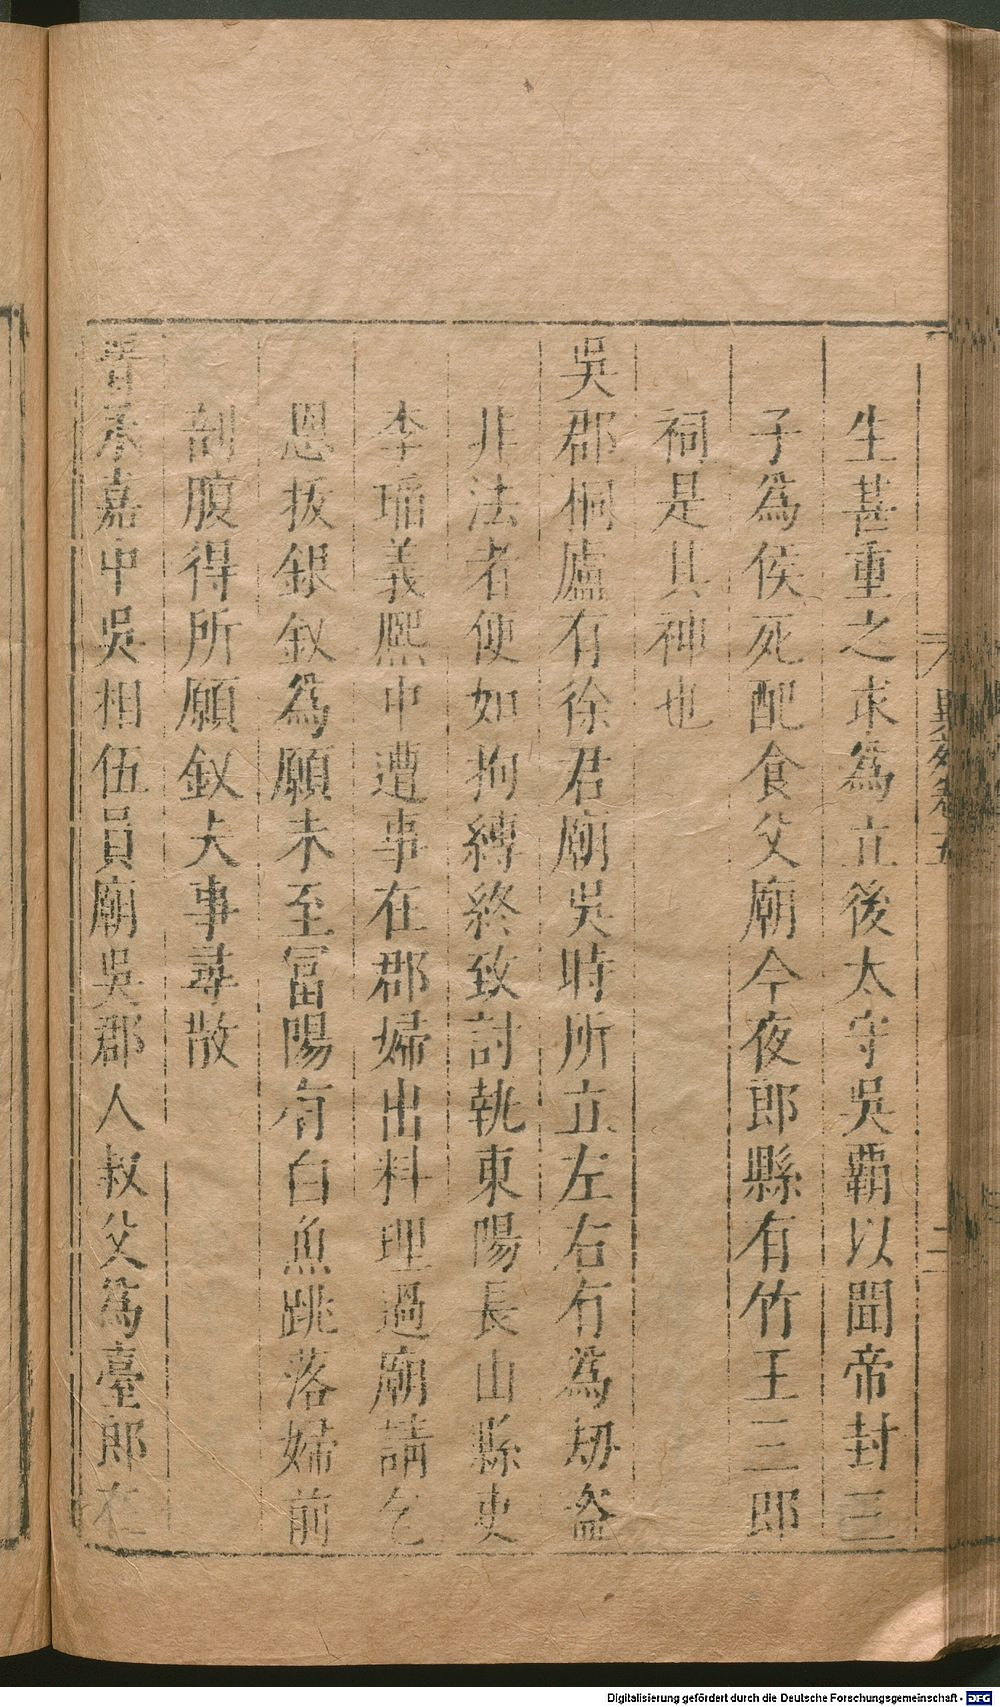 生甚重之求為立後太守吳霸以聞帝封三
子為侯死配食父廟今夜郎縣有竹王三郎
祠是其神也
吳郡桐廬有徐君廟吳時所立左右有為刼盜
非法者便如拘縛終致討執東陽長山縣吏
李瑫義熙中遭事在郡婦出料理過廟請乞
恩拔銀釵為願未至富陽有白魚跳落婦前
剖腹得所願釵夫事尋散
晉永嘉中吳相伍員廟吳郡人叔父為臺郎在
異苑卷五
二
Digitalisierung gefördert durch die Deutsche Forschungsgemeinschaft - DFG